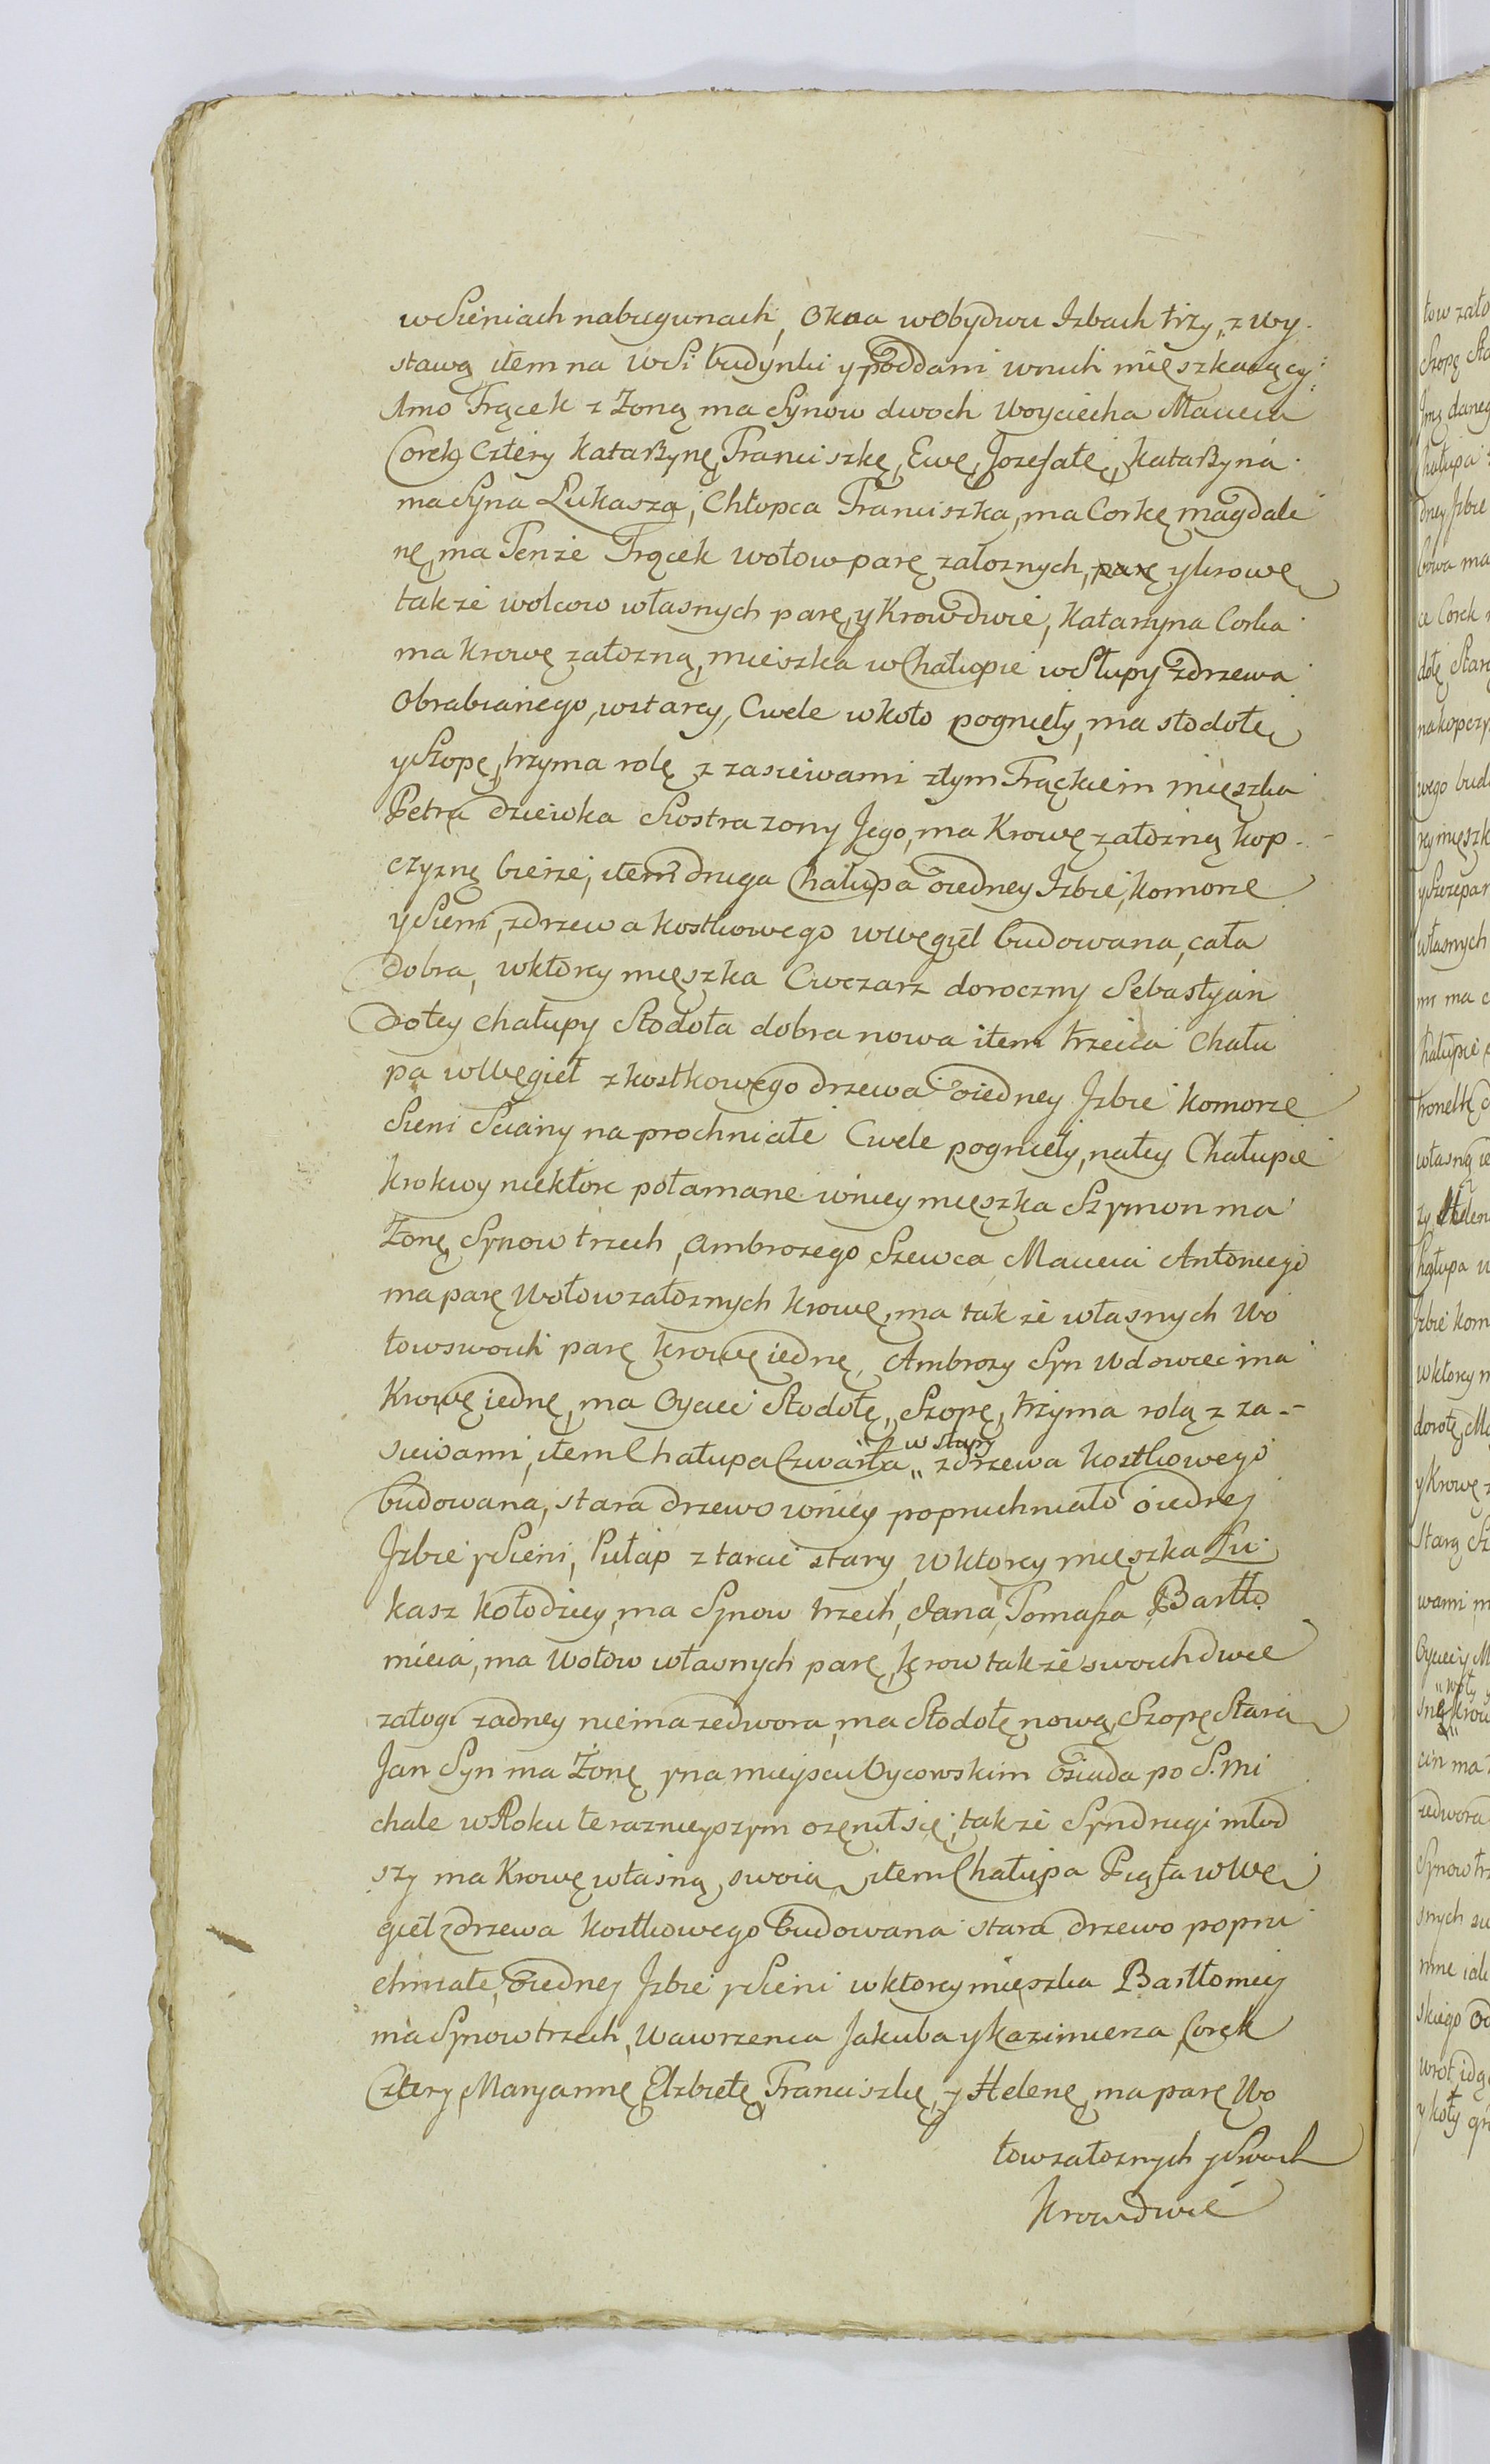 w Sieniach na bugunach, Okna w Obydwu Izbach trzy, z wy-
stawą item na wsi budynki y poddani w nich mięszkaiący
1mo Frącek z Zoną ma Synow dwoch Woyciecha Macieia
Corek cztery Katarzynę, Franciszkę, Ewę, Jozefatę, Katarzyna
ma Syna Łukasza, Chłopca Franciszka, ma Corkę Magdale
nę, ma Tenze Frącek wołow parę załoznych, parę y krowę
takze wolcow własnych parę, y Krow dwie, Katarzyna Corka
ma Krowę załozną, mieszka w Chałupie w Słupy z drzewa
Obrabianego, w starey, Cwele w koło pogniły, ma stodołę
y Szopę, trzyma rolę z zasiewami z tym Frąckiem mięszka
Petra dziewka Siostra zony Jego, ma Krowę załozną kop-
czyznę bierze, item druga Chałupa o iedney Izbie, komorze
y Sieni, z drzewa kostkowego w węgieł budowana, cała
dobra, w ktorey mięszka Owczarz doroczny Sebastyan
do tey chałupy Stodoła dobra nowa item trzecia Chału
pa w Węgieł z kostkowego drzewa o iedney Izbie komorze
Sieni Sciany naprochniałe Cwele pogniły, na tey Chałupie
krokwy niektore połamane w niey mięszka Szymon ma
Zonę Synow trzech, Ambrozego Szewca, Macieia Antoniego
ma parę Wołow załoznych krowę, ma takze własnych Wo
łow swoich parę krowę iednę, Ambrozy Syn wdowiec ma
Krowę iednę, ma Oyciec Stodołę, Szopę, trzyma rolą z za-
siewami, item Chałupa Czwarta „w słupy z drzewa kostkowego
budowana, stara drzewo w niey popruchniało o iedney
Izbie y Sieni, Pułap z tarcic stary, w ktorey mięszka Łu
kasz Kołodziey, ma Synow trzech, Jana, Tomasza Bartło
mieia, ma Wołow własnych parę, krow takze swoich dwie
załogi zadney niema ze dwora, ma Stodołę nową, Szopę Stara
Jan Syn ma Żonę y na mieyscu Oycowskim Osiada po S. Mi
chale w Roku terazneyszym ozęnił się, takze Syn drugi młod
szy ma Krowę własną swoią item Chałupa Piąta w Wę
gieł z drzewa kostkowego budowana stara drzewo popru
chniałe, o iedney Izbie y Sieni w ktorey mięszka Bartłomiey
ma Synow trzech, Wawrzenca Jakuba y Kazimierza, Corek
Cztery, Maryannę Elzbietę, Franciszkę, y Helenę, ma parę Wo
łow załoznych y Swoich
Krow dwie